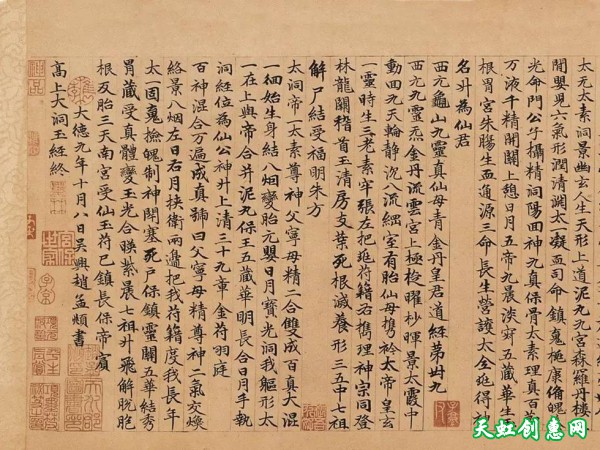 太无太素洞景幽玄人生天形上道泥九九宮森羅丹樓
開嬰兒六氣形潤清調太一凝亟司命鎮鬼梃康脩魄
光命門公子攝精洞陽回神九真保骨太素理真百
万液千精開關上憩日月五帝九晨淡寥五藏華生
根胃宮朱腸生血通源三命長生營護太全班得神
名升為仙君
西元龜山九靈真仙母青金丹皇君道經苐卅九
西元九靈炁金丹流雲宮上極梭曜杪暉景太霞中
動四九天輪静沉八流綑室有胎仙母携衿太帝皇玄
一靈時生三老素牢張左把班符籍右攜理神宗同登
林龍關稽首玉清房支葉死根滅養形三五中七祖
解尸結受福明朱方
太洞帝一太素尊神父寧母精二合雙成百真大混
一徊始生身結八烟變胎元嬰日月寶光洞我軀形太
一在上與帝合并泥九保王五藏華明長合日月手執
洞經位為仙公神升上清三十九章金符羽庭
百神混合万遍成真號曰父寧母精尊神二氣交煥
絡景八烟左日右月挾衛兩邊把我符籍度我長年
太一固鬼撿魄制神開塞死戶保鎮靈關五華結秀
胃藏受真體變玉光合暎紫晨七祖升飛解脫胞
根反胎三天南宮受仙玉符已鎮長保帝賓
大德九年十月八日吳興趙孟頫書
高上大洞玉經終
天虹创意网